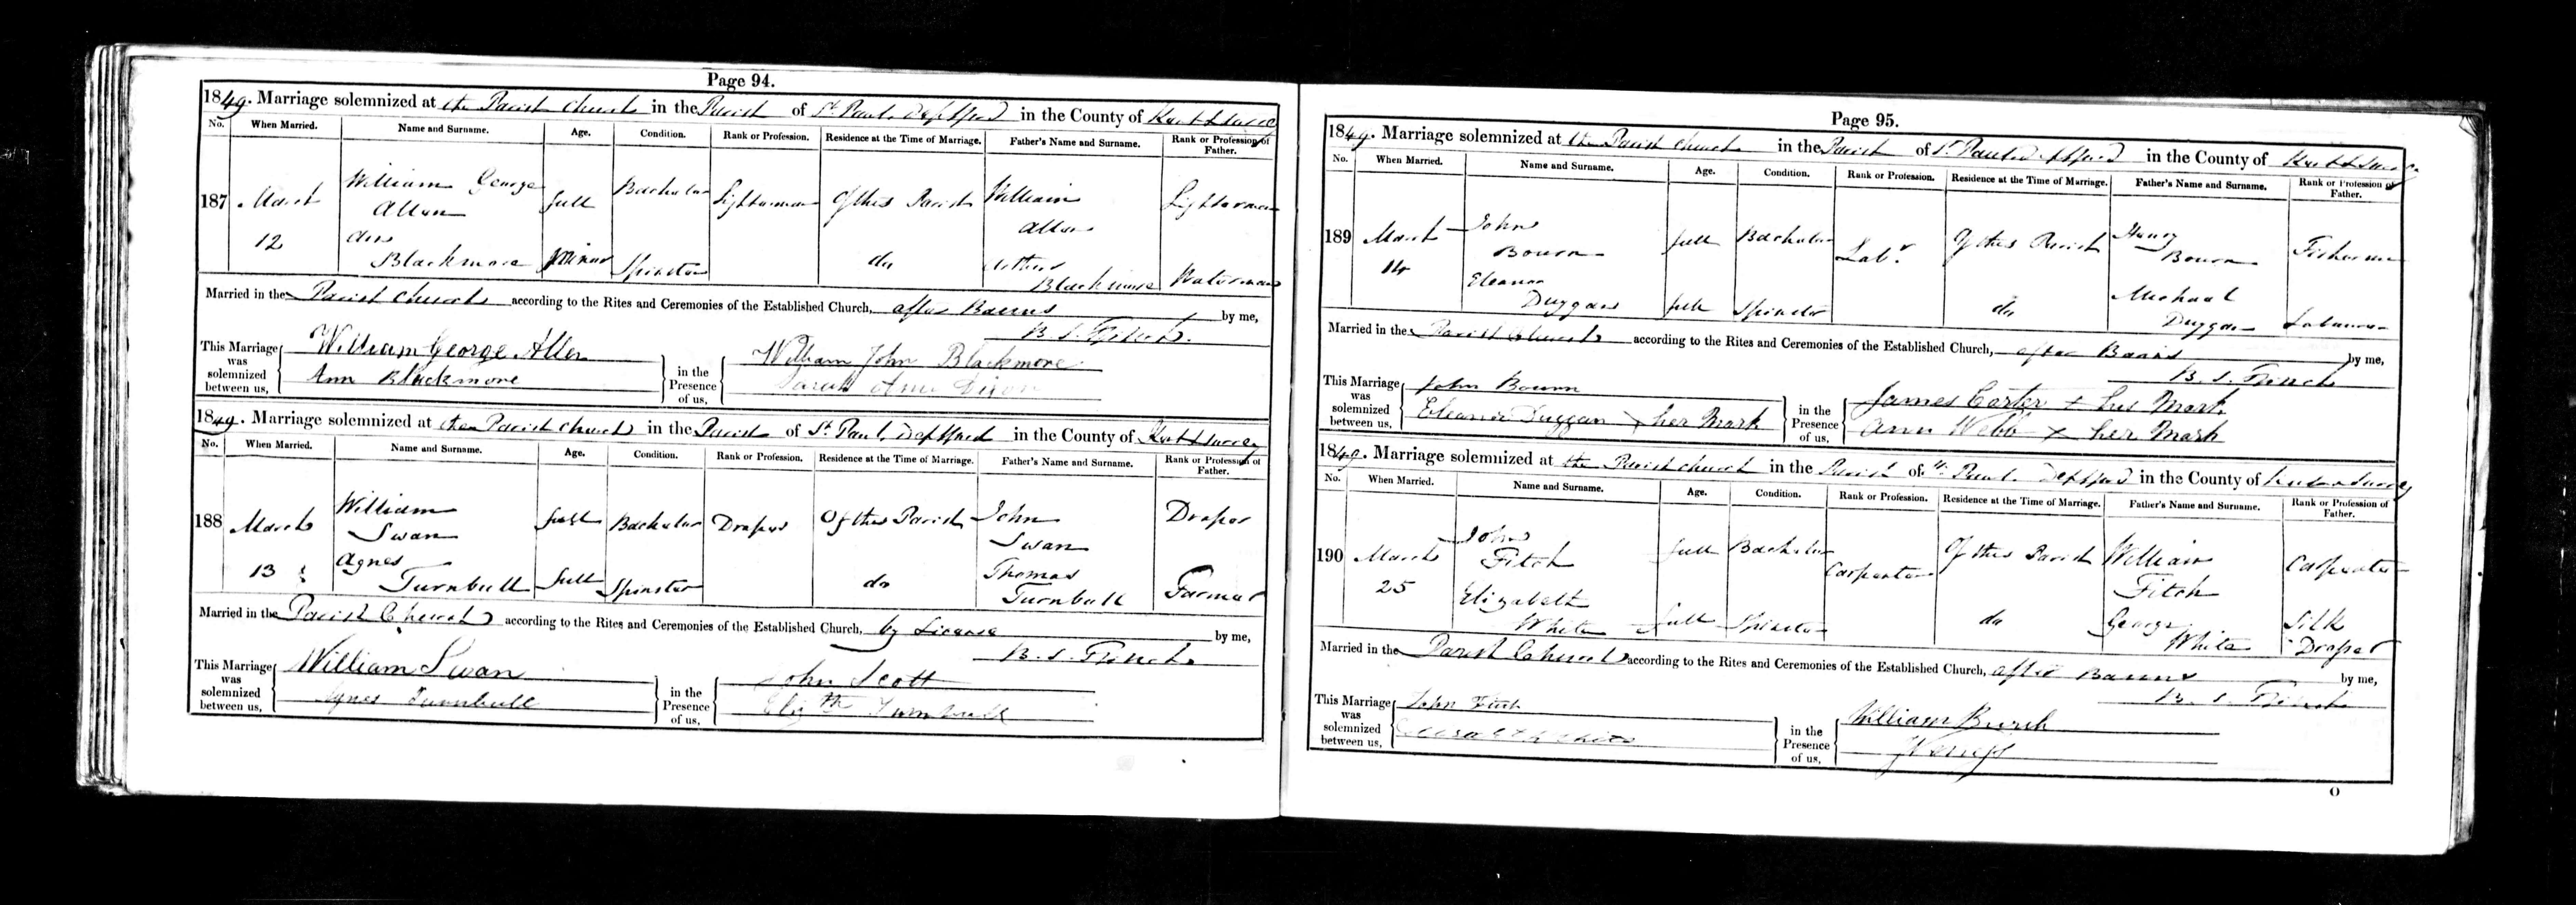 Page 94.
1849. Marriage solemnized at the Parish Church in the Parish of St Paul Deptford in the County of Kent & Surrey
No. When Married. Name and Surname. Age. Condition. Rank or Profession. Residence at the Time of Marriage. Father's Name and Surname. Rank or Profession of Father.
187 March 12 William George Allen full Bachelor Lighterman Of this Parish William Allen Lighterman
Ann Blackmore Minor Spinster do Blackmore Waterman
Married in the Parish Church according to the Rites and Ceremonies of the Established Church, after Banns by me,
B. S. Ffinch
This Marriage was solemnized between us, William George Allen in the Presence of us, William John Blackmore
Ann Blackmore Sarah Ann Dixon
1849. Marriage solemnized at the Parish Church in the Parish of St Paul Deptford in the County of Kent & Surrey
No. When Married. Name and Surname. Age. Condition. Rank or Profession. Residence at the Time of Marriage. Father's Name and Surname. Rank or Profession of Father.
188 March 13 William Swan full Bachelor Draper Of this Parish John Swan Draper
Agnes Turnbull full Spinster do Thomas Turnbull Farmer
Married in the Parish Church according to the Rites and Ceremonies of the Established Church, by License by me,
B. S. Ffinch
This Marriage was solemnized between us, William Swan in the Presence of us, John Scott
Agnes Turnbull Elizth Turnbull
Page 95.
1849. Marriage solemnized at the Parish Church in the Parish of St Paul Deptford in the County of Kent & Surrey
No. When Married. Name and Surname. Age. Condition. Rank or Profession. Residence at the Time of Marriage. Father's Name and Surname. Rank or Profession of Father.
189 March 14 John Bourn full Bachelor Labr Of this Parish Henry Bourn Fisherman
Eleanor Duggan full Spinster do Michael Duggan Labourer
Married in the Parish Church according to the Rites and Ceremonies of the Established Church, after Banns by me,
B. S. Ffinch
This Marriage was solemnized between us, John Bourn in the Presence of us, James Carter x his Mark
Eleanor Duggan x her Mark Ann Webb x her Mark
1849. Marriage solemnized at the Parish Church in the Parish of St Paul Deptford in the County of Kent & Surrey
No. When Married. Name and Surname. Age. Condition. Rank or Profession. Residence at the Time of Marriage. Father's Name and Surname. Rank or Profession of Father.
190 March 25 John Fitch full Bachelor Carpenter Of this Parish William Fitch Carpenter
Elizabeth White full Spinster do George White Silk Draper
Married in the Parish Church according to the Rites and Ceremonies of the Established Church, after Banns by me,
B. S. Ffinch
This Marriage was solemnized between us, John Fitch in the Presence of us, William Burch
Elizabeth White
O